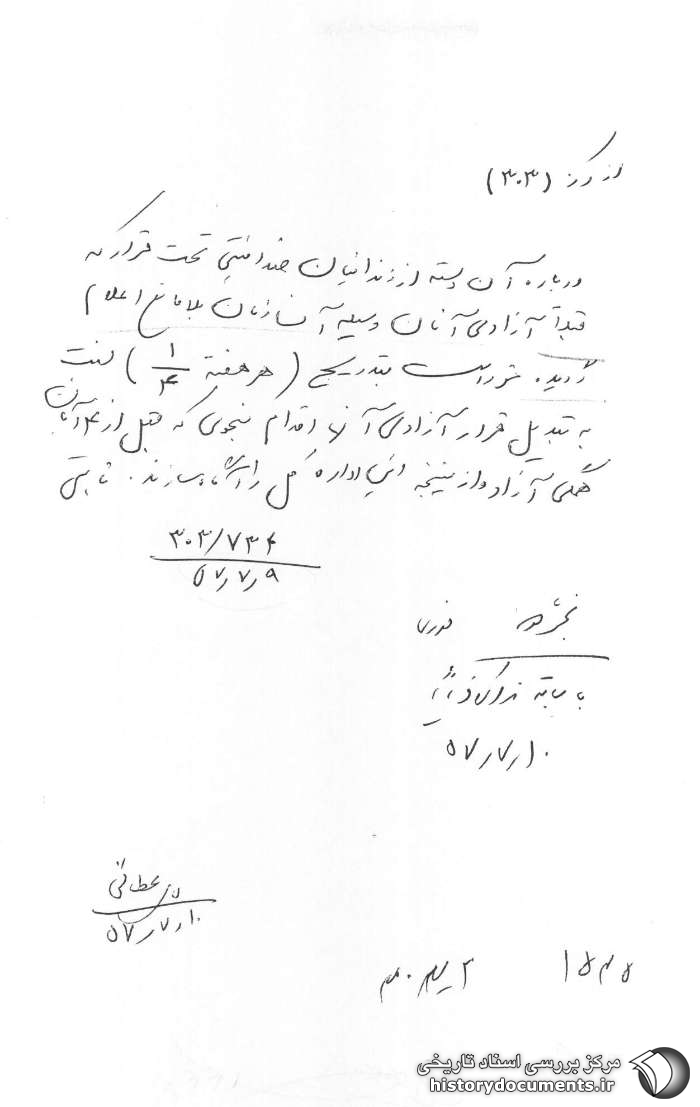 از مرکز (۳۰۳)
درباره آن دسته از زندانیان ضدامنیتی تحت قرار که
قبلاً آزادی آنان وسیله آن سازمان بلامانع اعلام
گردیده ضروریست بتدریج (هر هفته ۱/۴) نسبت
به تبدیل قرار و آزادی آنها اقدام بنحوی که قبل از ۴ آبان
همگی آزاد و از نتیجه این اداره کل را آگاه سازند. ثابتی
۳۰۳/۷۳۴
۵۷٫۷٫۹
فوری
با سابقه
۵۷٫۷٫۱۰
۵۷٫۷٫۱۰
مرکز بررسی اسناد تاریخی
historydocuments.ir